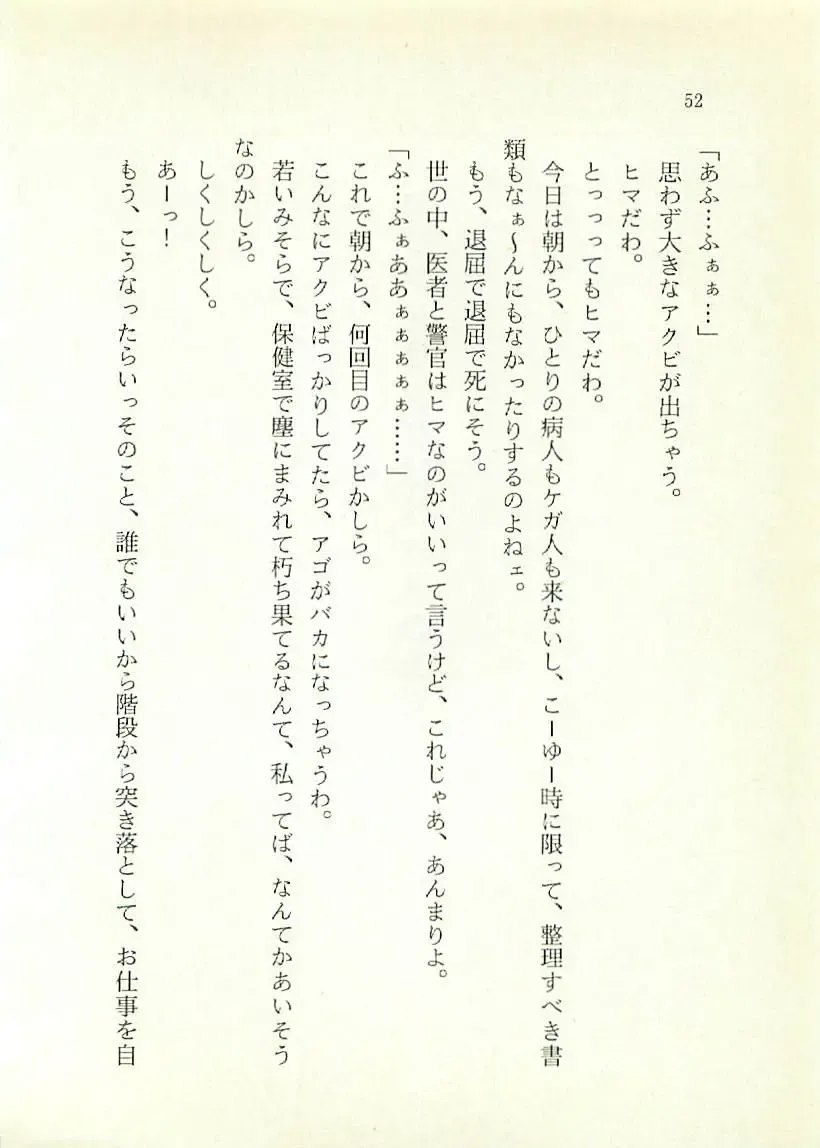 52
「あふ…ふぁぁ…」
思わず大きなアクビが出ちゃう。
ヒマだわ。
とっっってもヒマだわ。
今日は朝から、ひとりの病人もケガ人も来ないし、こーゆー時に限って、整理すべき書
類もなぁ〜んにもなかったりするのよねェ。
もう、退屈で退屈で死にそう。
世の中、医者と警官はヒマなのがいいって言うけど、これじゃあ、あんまりよ。
「ふ…ふぁああぁぁぁぁ……」
これで朝から、何回目のアクビかしら。
こんなにアクビばっかりしてたら、アゴがバカになっちゃうわ。
若いみそらで、保健室で塵にまみれて朽ち果てるなんて、私ってば、なんてかあいそう
なのかしら。
しくしくしく。
あーっ！
もう、こうなったらいっそのこと、誰でもいいから階段から突き落として、お仕事を自